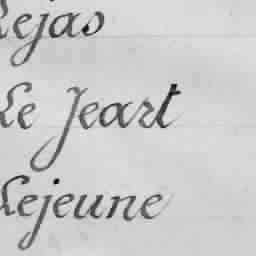 Lejas
Le Jeart
Lejeune